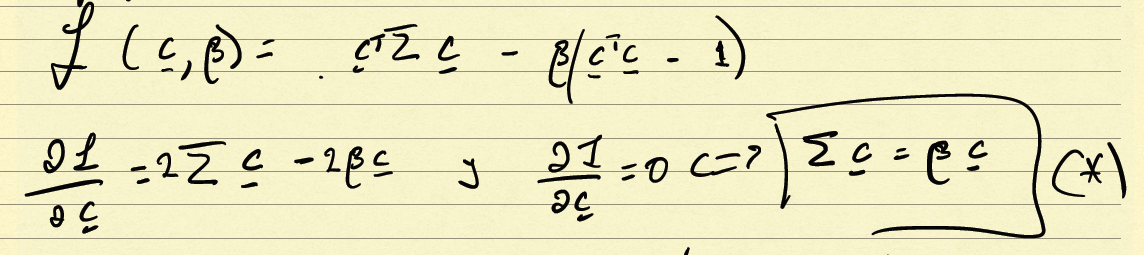 ℒ(c̲, β) = c̲ᵀΣ c̲ - β(c̲ᵀc̲ - 1)
∂ℒ/∂c̲ = 2Σ c̲ - 2βc̲ y ∂ℒ/∂c̲ = 0 <=> Σ c̲ = β c̲ (*)